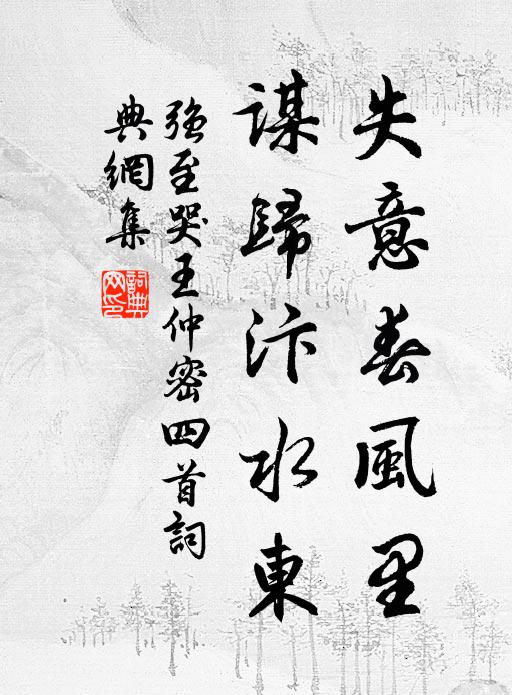 失意春風里
謀歸汴水東
強至哭王仲密四首詞
典網集
詞典網印